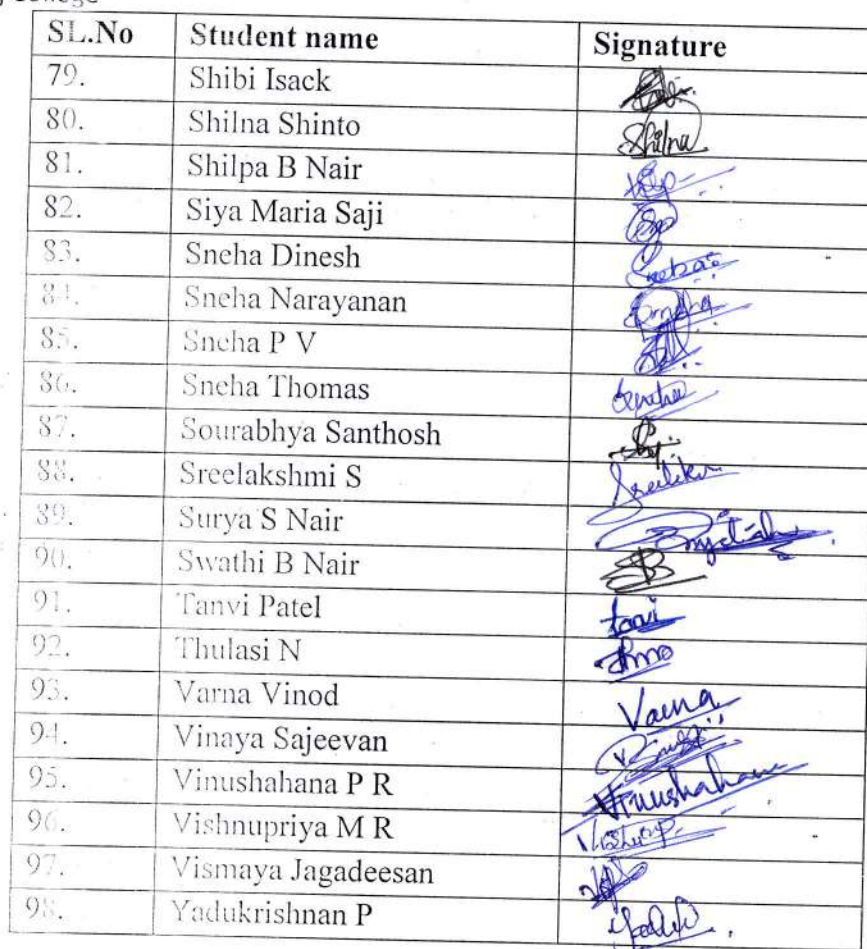 College
SL.No Student name Signature
79. Shibi Isack
80. Shilna Shinto Shilna
81. Shilpa B Nair
82. Siya Maria Saji
83. Sneha Dinesh
84. Sneha Narayanan
85. Sneha P V
86. Sneha Thomas
87. Sourabhya Santhosh
88. Sreelakshmi S
89. Surya S Nair
90. Swathi B Nair
91. Tanvi Patel
92. Thulasi N
93. Varna Vinod Varna
94. Vinaya Sajeevan
95. Vinushahana P R
96. Vishnupriya M R
97. Vismaya Jagadeesan
98. Yadukrishnan P